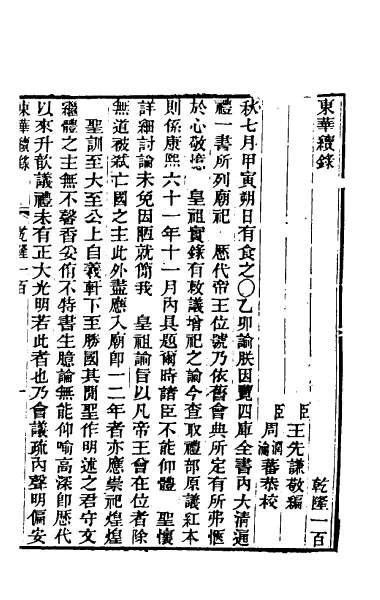 東華續錄
乾隆一百
臣王先謙敬編
臣周潤蕃周瀹蕃恭校
秋七月甲寅朔日有食之○乙卯諭朕因覽四庫全書內大清通
禮一書所列廟祀　歷代帝王位號乃依舊會典所定有所弗愜
於心敬憶　皇祖實錄有敕議增祀之諭今查取禮部原議紅本
則係康熙六十一年十一月內具題爾時諸臣不能仰體　聖懷
詳細討論未免因陋就簡我　皇祖諭旨以凡帝王曾在位者除
無道被弒亡國之主此外盡應入廟即一二年者亦應崇祀煌煌
聖訓至大至公上自羲軒下至勝國其閒聖作明述之君守文
繼體之主無不馨香妥侑不特書生臆論無能仰喻高深即歷代
以來升歆議禮未有正大光明若此者也乃會議疏內聲明偏安
東華續錄　乾隆一百　一